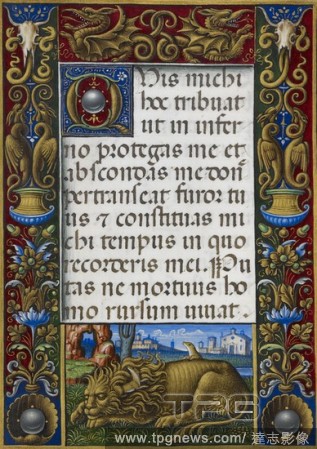 QVis michi
hoc tribuat
ut in infer
no protegas me et
abscondas me doñ
pertranseat furor tu
us & constituas mi
chi tempus in quo
recorderis mei. Pu
tas ne mortuus ho
mo rursum uiuat.
TPG
www.tpgnews.com/ 達志影像